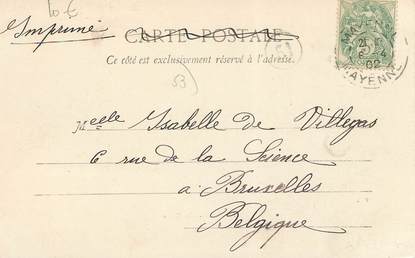 10 £
Imprimé
CARTE POSTALE
Ce côté est exclusivement réservé à l'adresse.
53
MAYENNE
21
6 - 4
02
MAYENNE
Melle Isabelle de Villegas
6 rue de la Science
à Bruxelles
Belgique